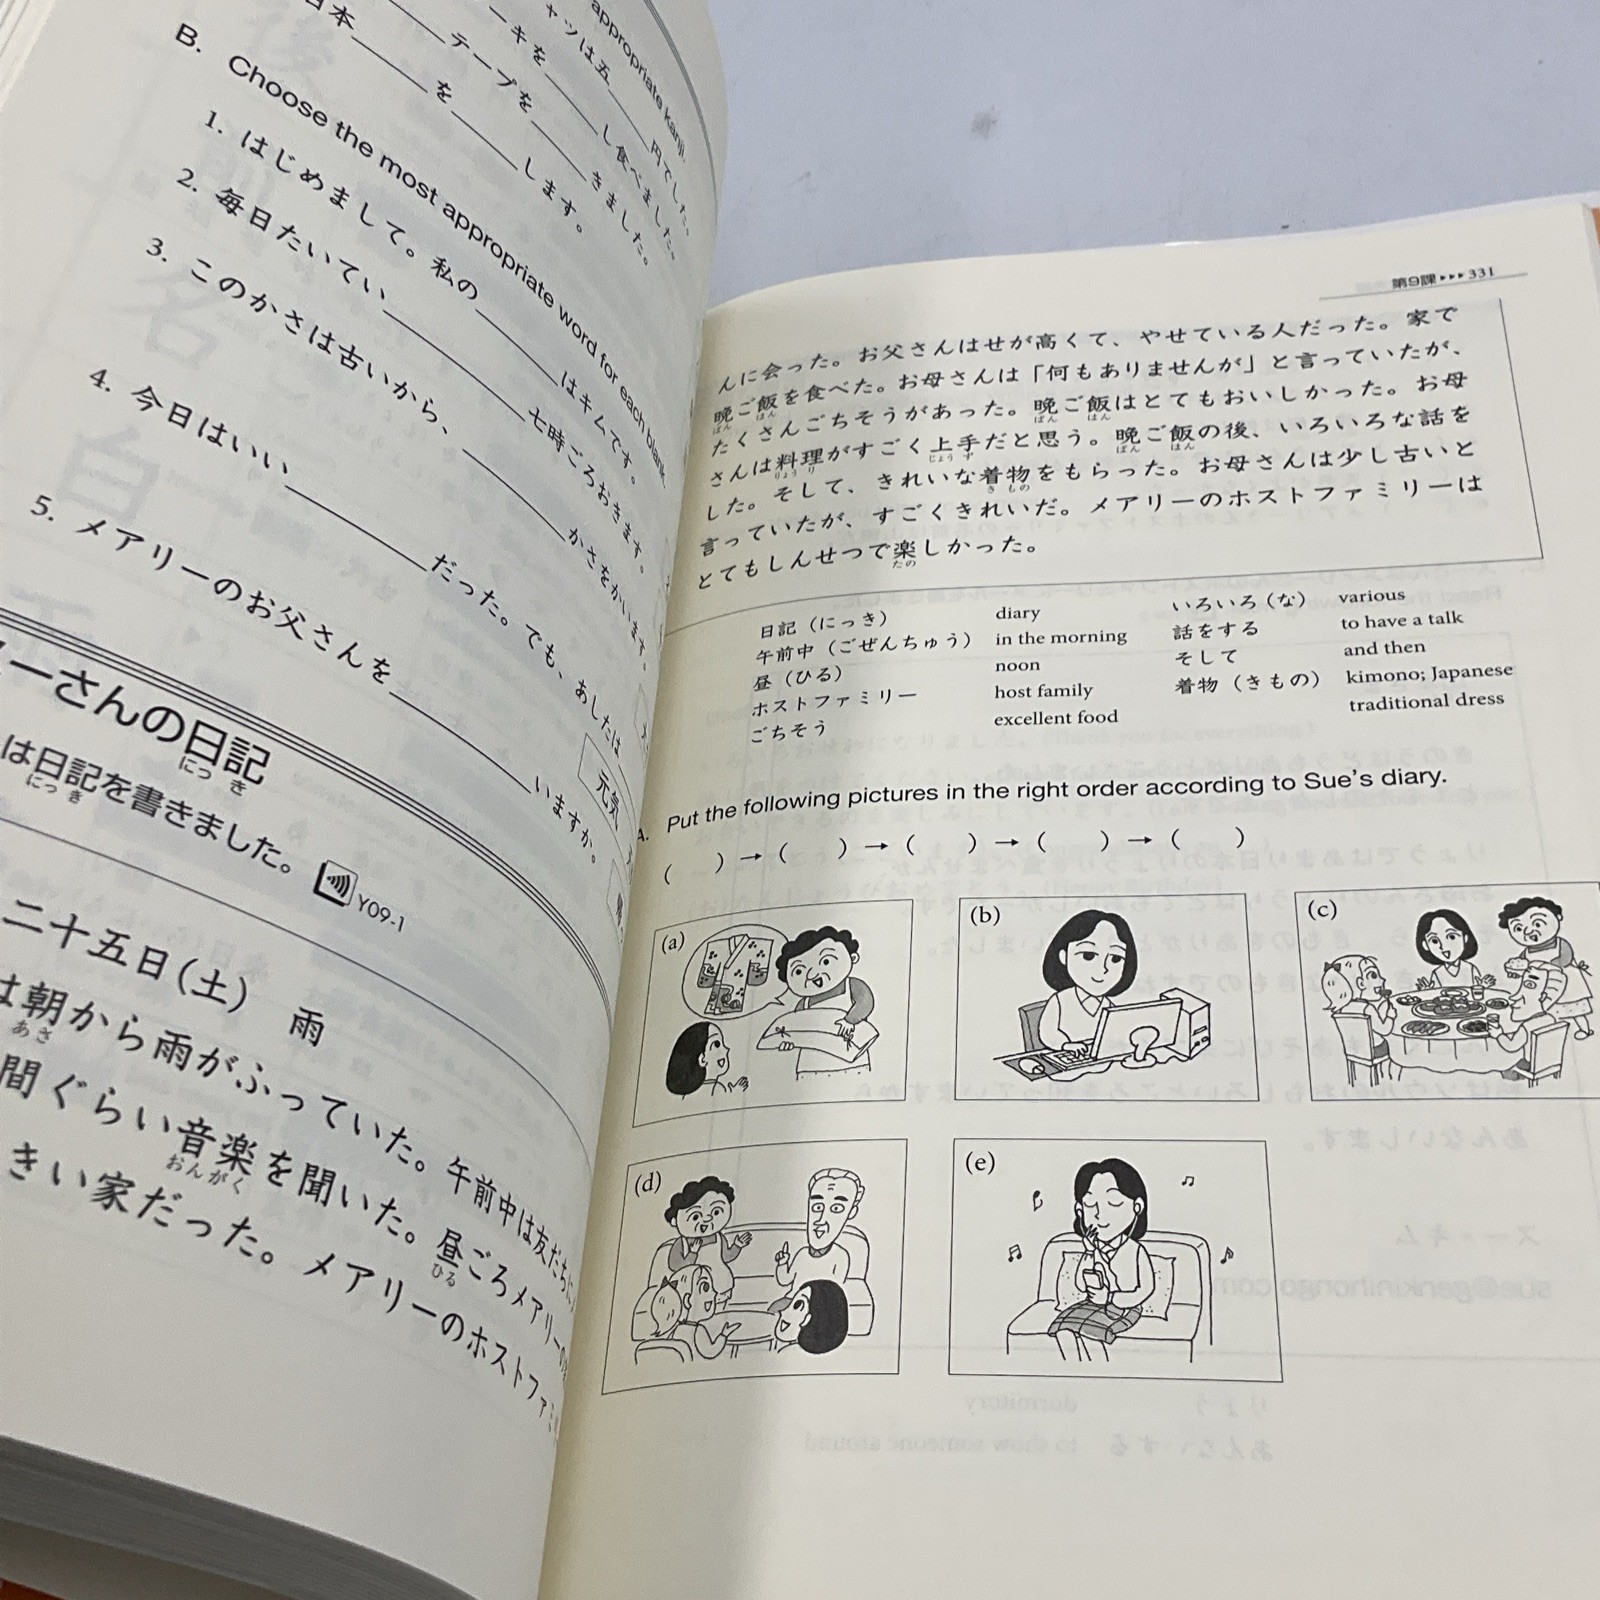 appropriate kanji.
ャツは五____円でした。
ーキを____し食べました。
____テープを____きました。
日本____を____します。
B. Choose the most appropriate word for each blank.
1. はじめまして。私の______はキムです。
2. 毎日たいてい______七時ごろおきます。
3. このかさは古いから、______かさをかいます。
4. 今日はいい______だった。でも、あしたは
5. メアリーのお父さんを______いますか。
元気
ーさんの日記
にっき
は日記を書きました。 Y09-1
にっき
二十五日(土) 雨
は朝から雨がふっていた。午前中は友だちに
あさ
間ぐらい音楽を聞いた。昼ごろメアリーの
おんがく ひる
きい家だった。メアリーのホストファミ
第9課▸▸▸331
んに会った。お父さんはせが高くて、やせている人だった。家で
晩ご飯を食べた。お母さんは「何もありませんが」と言っていたが、
ばん はん
たくさんごちそうがあった。晩ご飯はとてもおいしかった。お母
ばん はん
さんは料理がすごく上手だと思う。晩ご飯の後、いろいろな話を
りょうり じょうず ばん はん
した。そして、きれいな着物をもらった。お母さんは少し古いと
きもの
言っていたが、すごくきれいだ。メアリーのホストファミリーは
とてもしんせつで楽しかった。
たの
日記（にっき） diary
午前中（ごぜんちゅう） in the morning
昼（ひる） noon
ホストファミリー host family
ごちそう excellent food
いろいろ（な） various
話をする to have a talk
そして and then
着物（きもの） kimono; Japanese
traditional dress
A. Put the following pictures in the right order according to Sue's diary.
( ) → ( ) → ( ) → ( ) → ( )
(a)
(b)
(c)
(d)
(e)